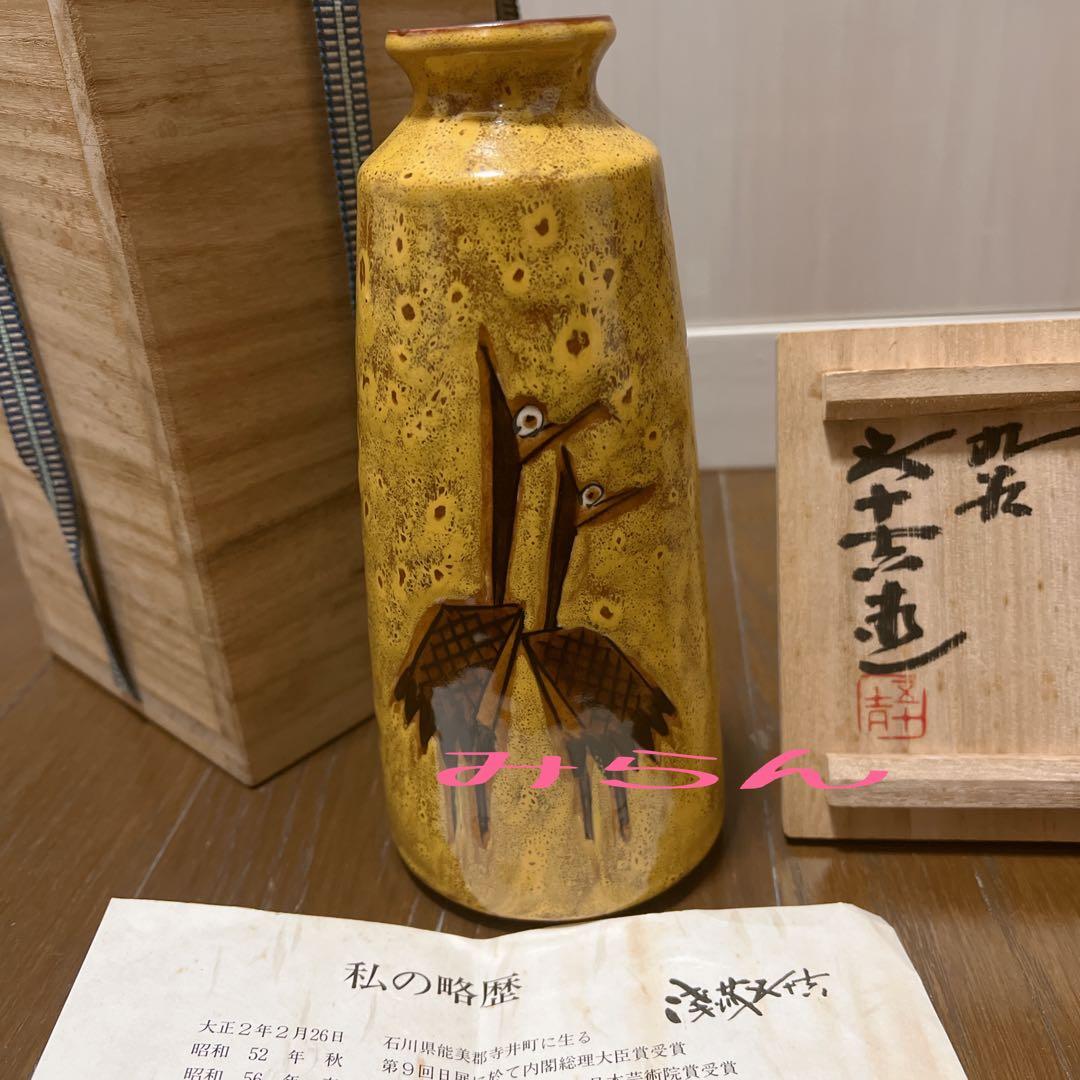 九谷
五十吉造
みらん
私の略歴
浅蔵五十吉
大正2年2月26日 石川県能美郡寺井町に生る
昭和 52 年 秋 第9回日展に於て内閣総理大臣賞受賞
昭和 56 年 日本芸術院賞受賞